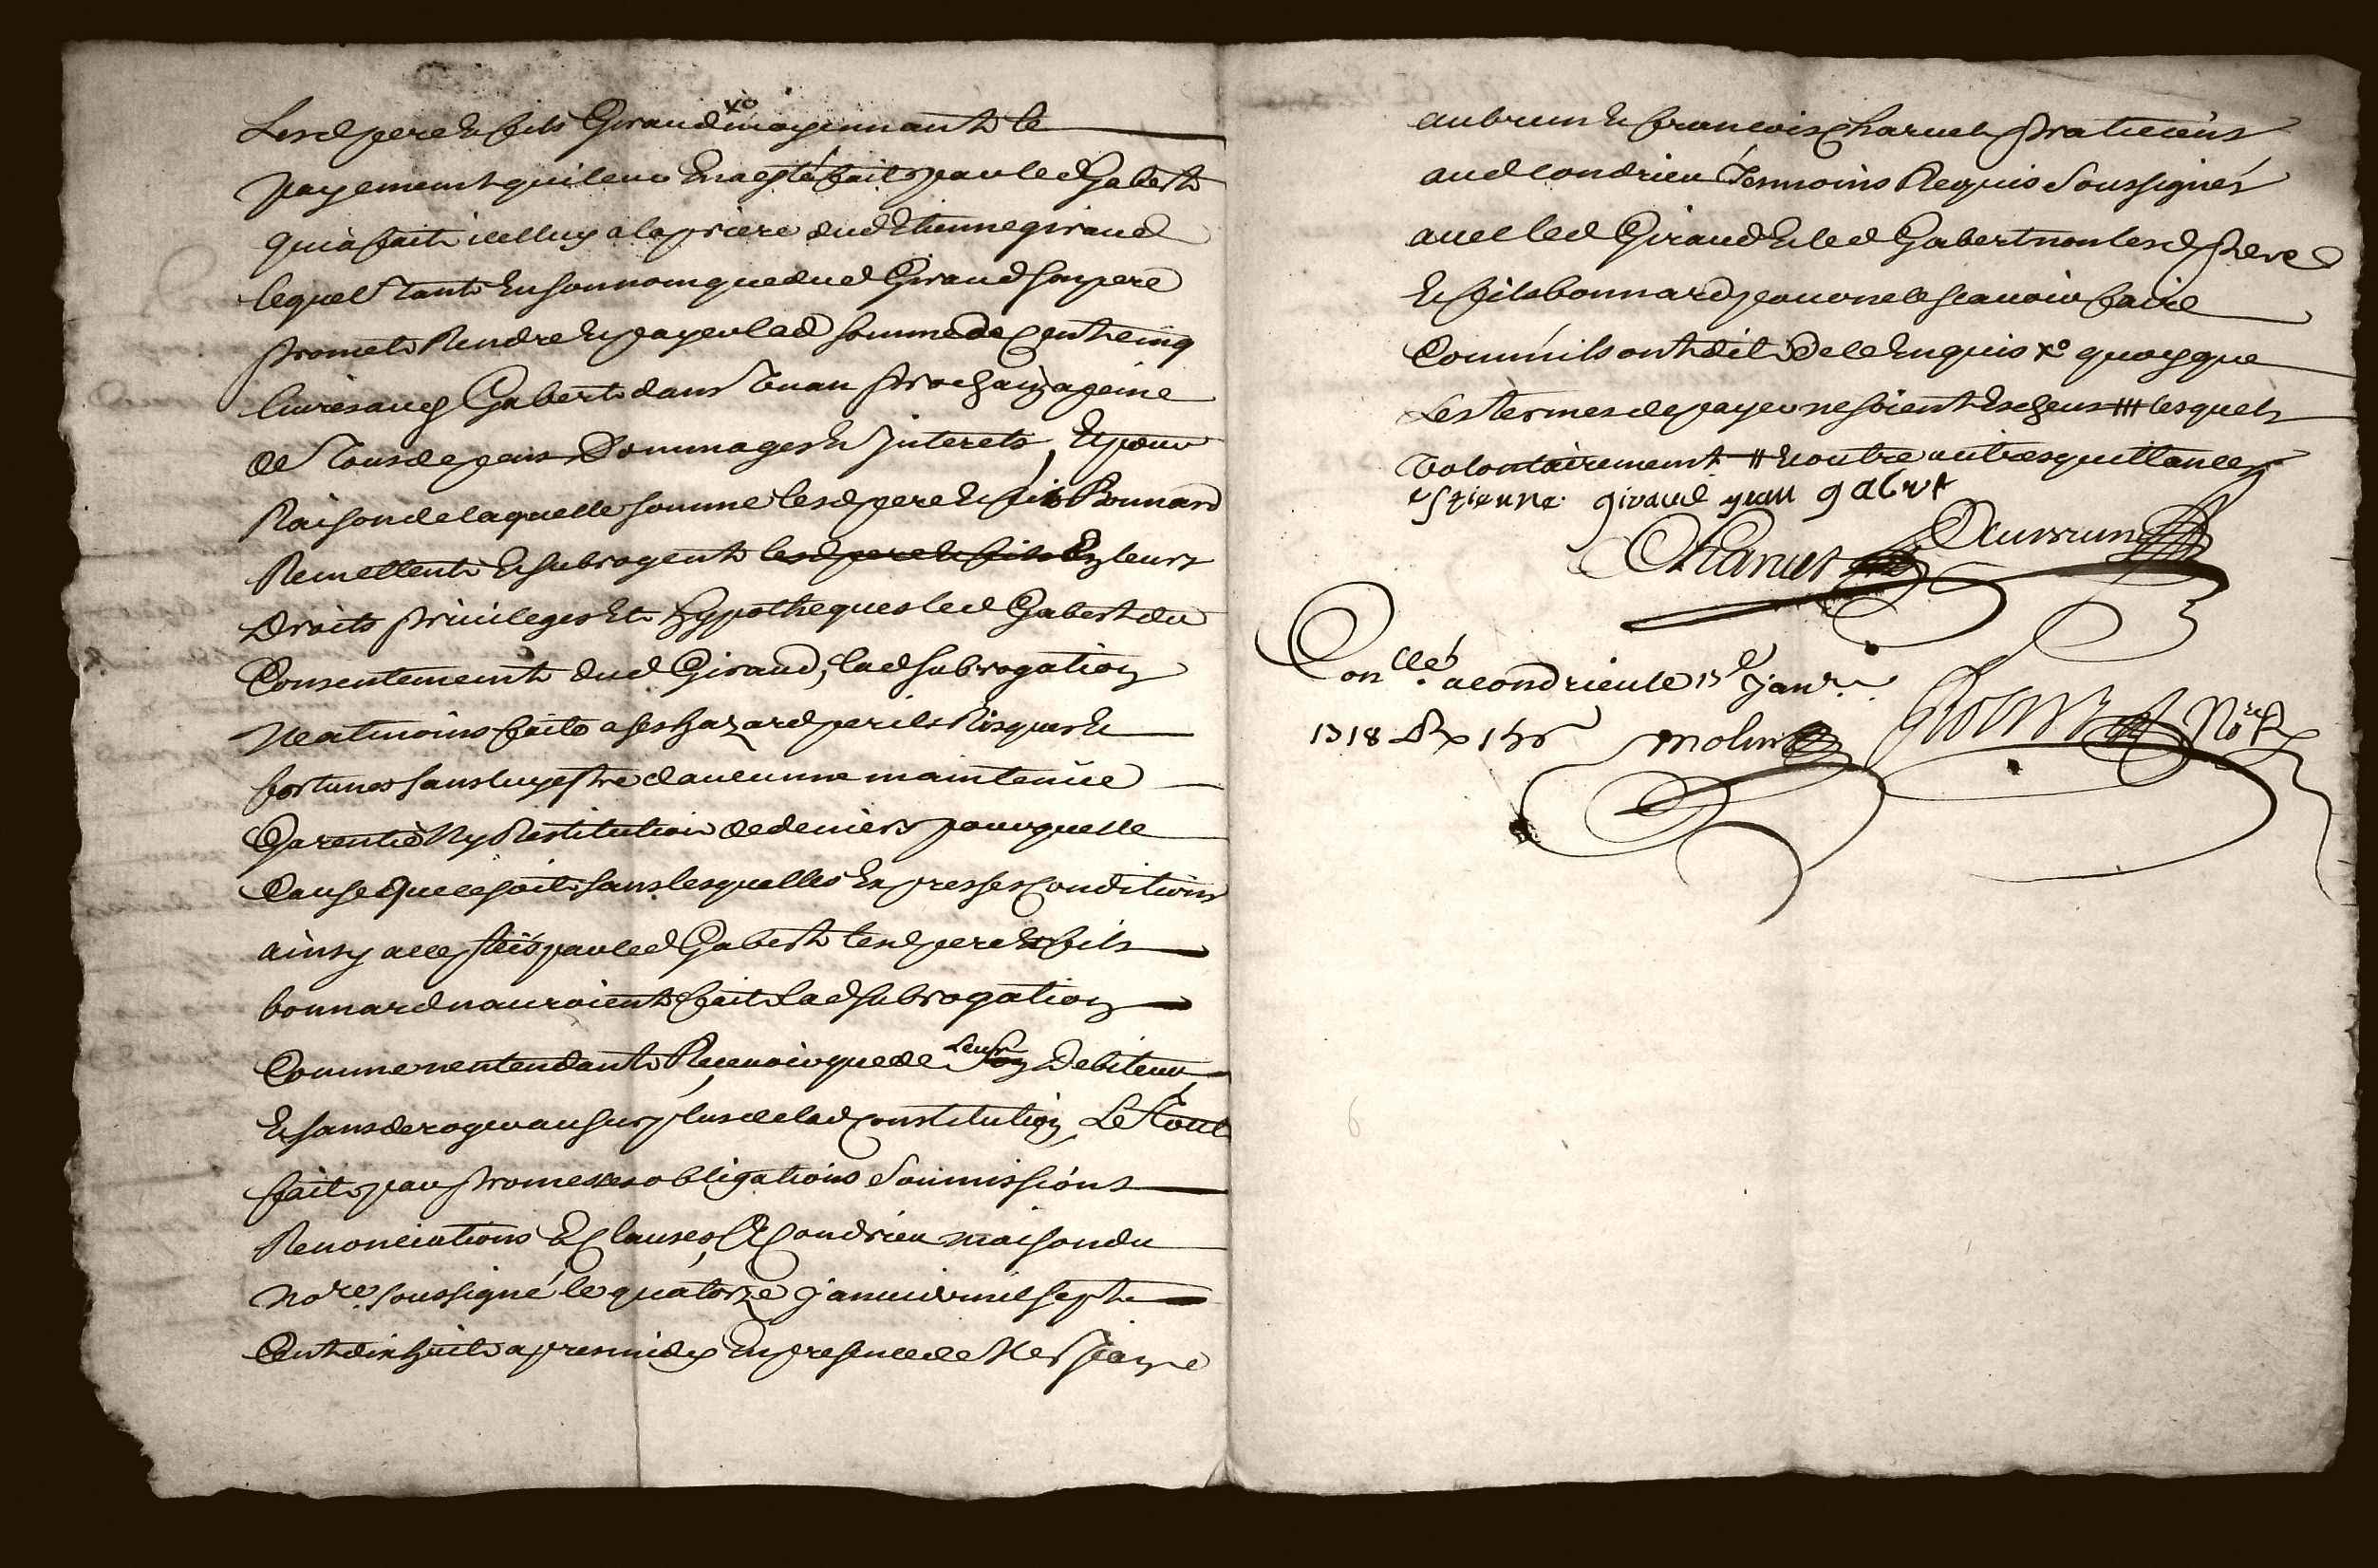 Lesd pere & fils Giraud xo moyennant le
payement quileur En a esté fait par led Gabert
qui a fait icelluy a la priere dud Etienne giraud
lequel tant En son nom que dud Giraud son pere
promet Rendre & payer lad somme de Cent cinq
livres aud Gabert dans un an prochain a peine
de Tous depens Dommages & Interets, Et pour
Raison de laquelle somme lesd pere & fils Bonnard
Remettent & subrogent lesd pere & fils En leurs
Droits privileges Et hypotheques led Gabert du
Consentement dud Giraud, lad subrogation
Neatmoins faite a ses hazard perils Risques &
fortunes sans luy estre d'aucunne maintenüe
Garentie Ny Restitution de deniers pour quelle
Cause que ce soit sans lesquelles Expresses Conditions
ainsy acceptéés par led Gabert lesd pere & fils
bonnard nauroient fait Lad subrogation
Comme nentendant Recevoir que de Leur son Debiteur,
& sans deroger au surplus de lad Constitution, Le Tout
fait par promesses obligations Soumissions
Renonciations & Clauses, A Condrieu maison du
No.re soussigné le quatorze janvier mil sept
Cent dix huit apres midy En presence de Me Pierre
aubrun & francois Charvet praticiens
aud Condrieu Tesmoins Requis Soussignés
avec led Giraud & led Gabert non lesd pere
& fils bonnard pour ne le scavoir faire
Comm'ils ont dit de ce Enquis xo quoyque
Les termes de payer ne soient Escheus ### lesquels
volontairement # & outre autres quittances
estienne giraud jean gabert
Charvet Aubrun
Con.llé a condrieu le 15e janr.
1718 Rx 15s molin No.re R